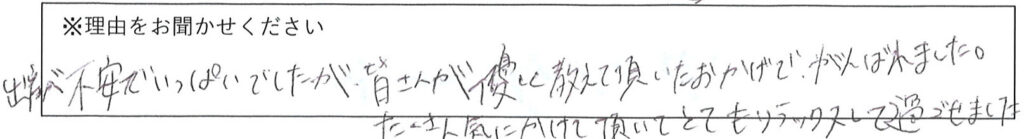 ※理由をお聞かせください
出産が不安でいっぱいでしたが、皆さんが優しく教えて頂いたおかげで、がんばれました。
たくさん気にかけて頂いてとてもリラックスして過ごせました